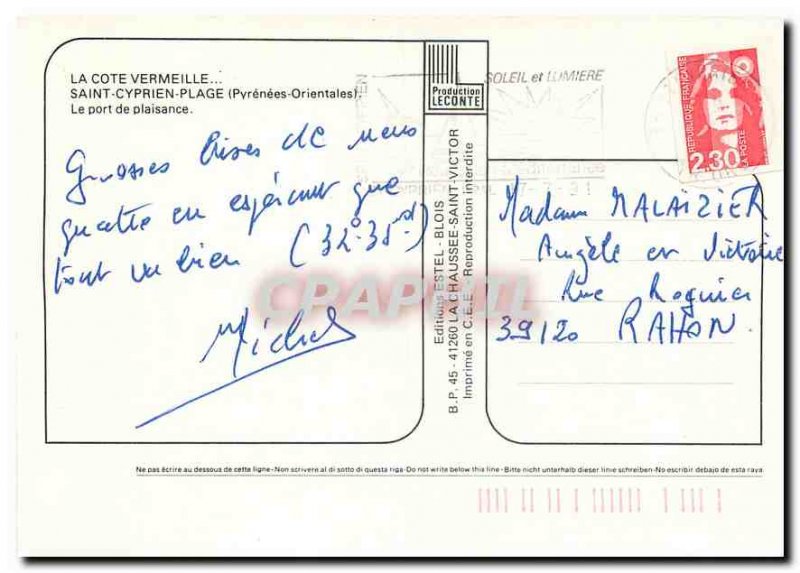 LA COTE VERMEILLE...
SAINT-CYPRIEN-PLAGE (Pyrénées-Orientales).
Le port de plaisance.
Grosses bises de nous
quatre en espérant que
tout va bien (32°-35°)
Michel
Production
LECONTE
Editions ESTEL - BLOIS
B.P. 45 - 41260 LA CHAUSSÉE-SAINT-VICTOR
Imprimé en C.E.E. - Reproduction interdite
SOLEIL et LUMIERE
REPUBLIQUE FRANÇAISE
2.30
LA POSTE
Madame MALAIZIER
Angèle et Victoire
Rue
39120 RAHON
CRAPHIL
Ne pas écrire au dessous de cette ligne - Non scrivere al di sotto di questa riga - Do not write below this line - Bitte nicht unterhalb dieser linie schreiben - No escribir debajo de esta raya